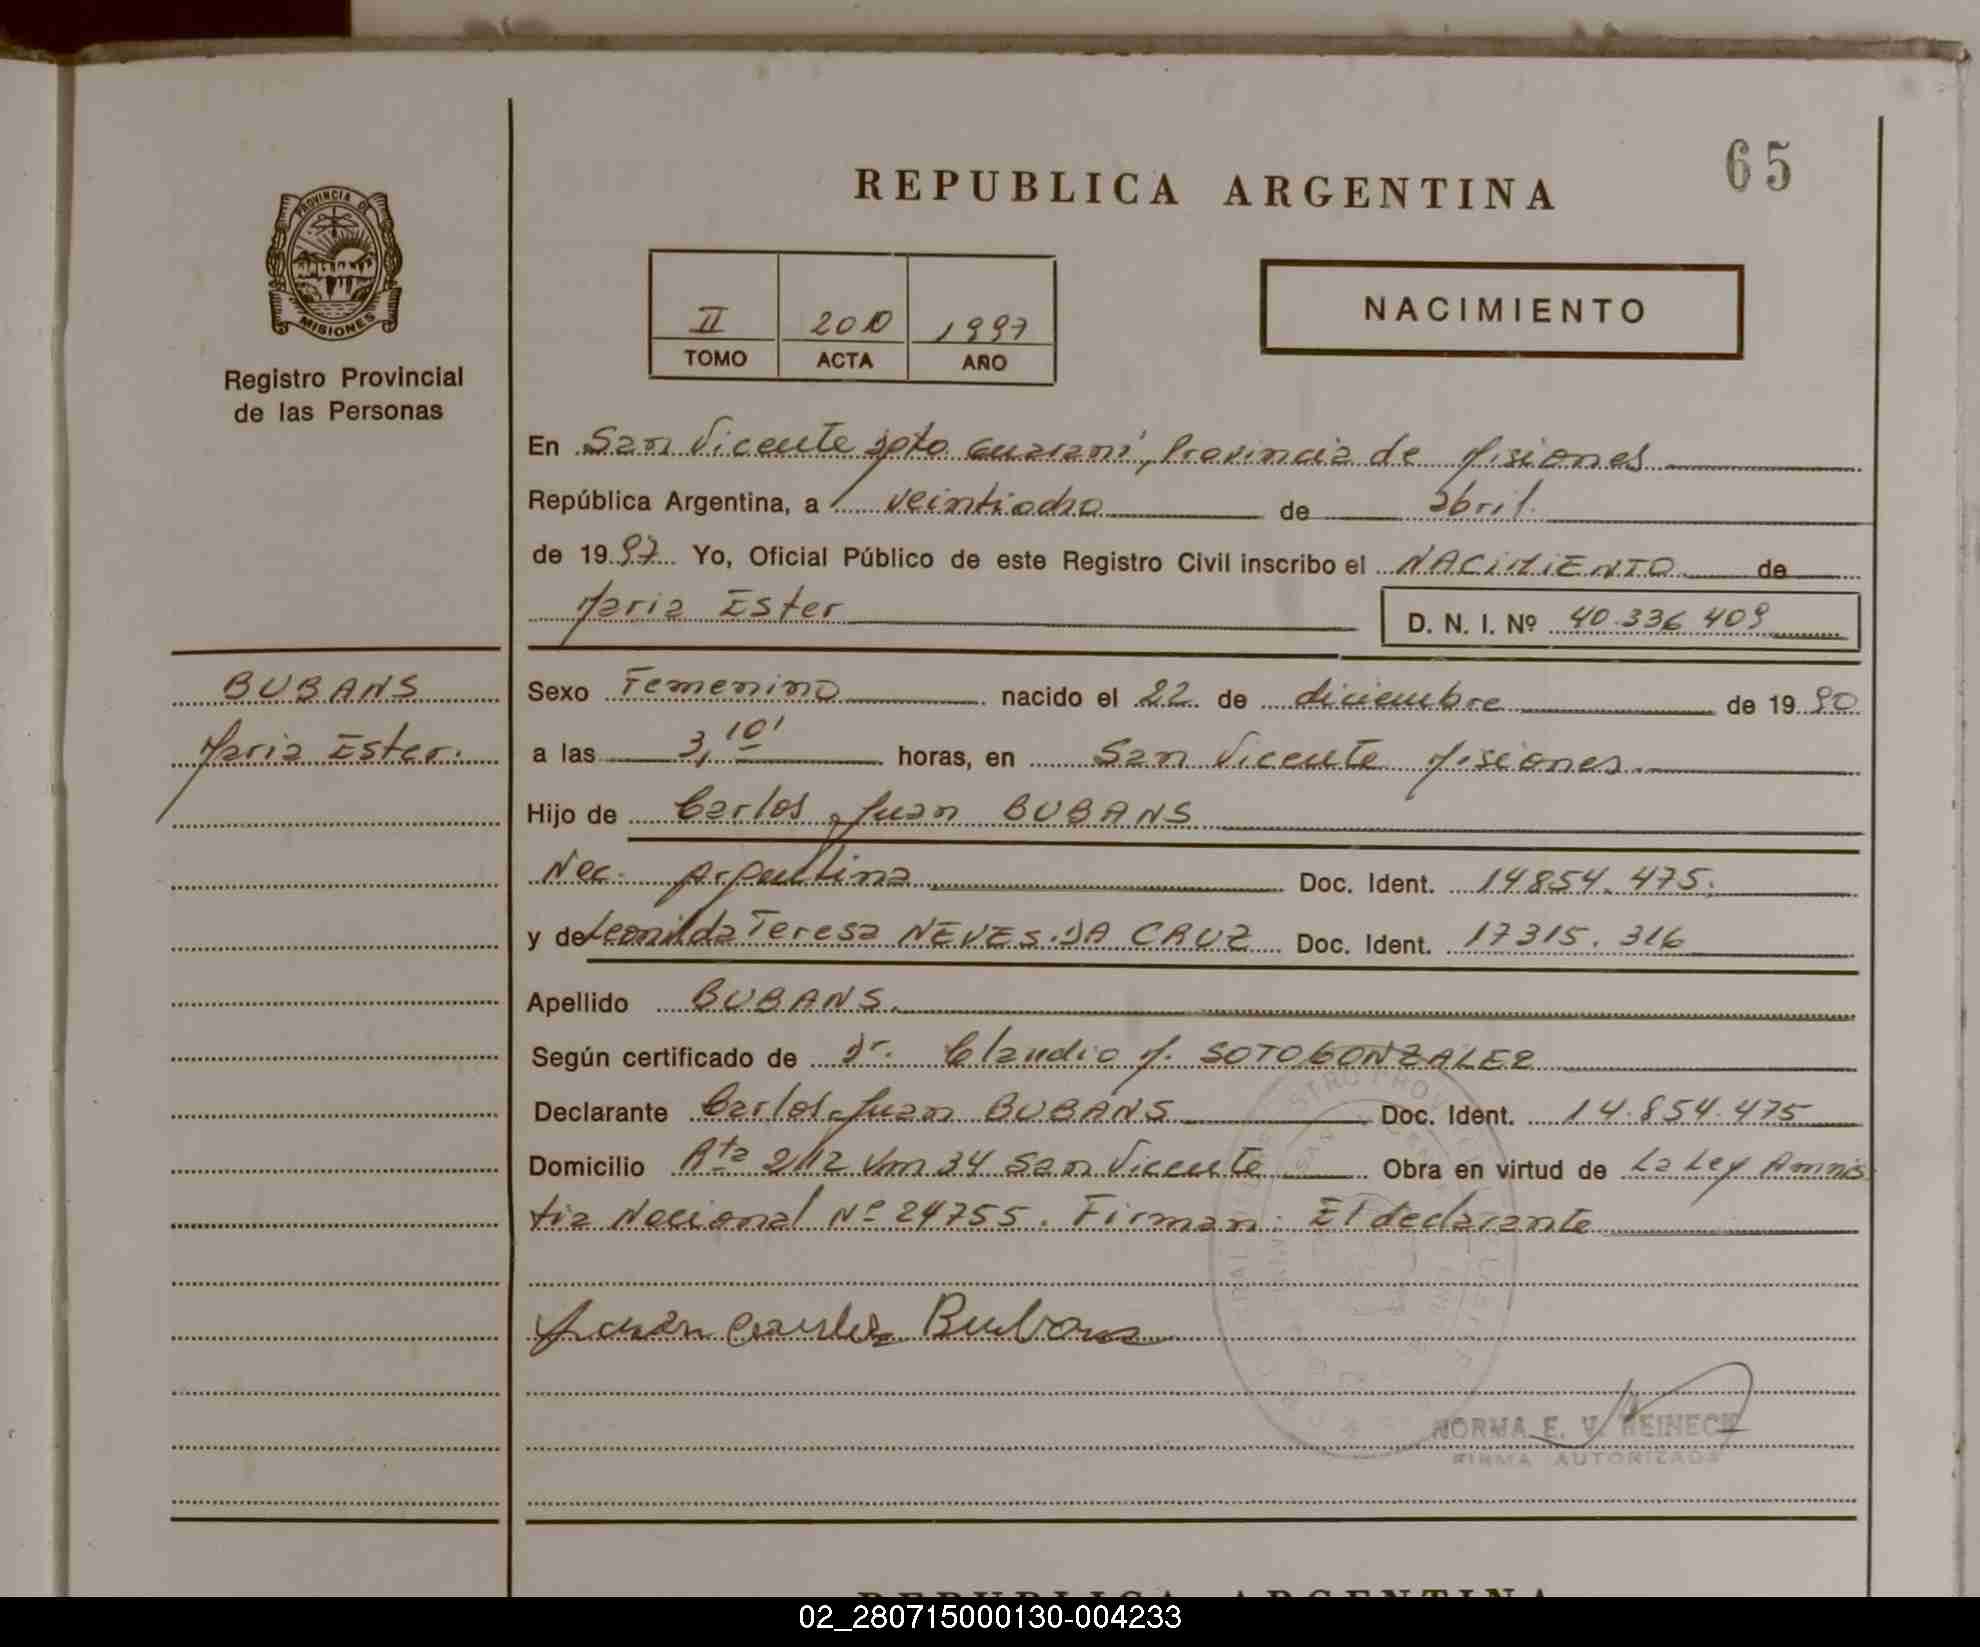 65
REPUBLICA ARGENTINA
PROVINCIA DE
MISIONES
Registro Provincial
de las Personas
II 2010 1997
TOMO ACTA AÑO
NACIMIENTO
En San Vicente Dpto Guaraní, Provincia de Misiones
República Argentina, a veintiocho de abril.
de 1997 Yo, Oficial Público de este Registro Civil inscribo el NACIMIENTO de
Maria Ester D. N. I. Nº 40.336 409
BUBANS
Maria Ester.
Sexo Femenino nacido el 22 de diciembre de 1990
a las 3,10' horas, en San Vicente Misiones.
Hijo de Carlos Juan BUBANS
Nac. Argentina Doc. Ident. 14854.475.
y de Leonilda Teresa NEVES DA CRUZ Doc. Ident. 17315.316
Apellido BUBANS.
Según certificado de Dr. Claudio M. SOTO GONZALEZ
Declarante Carlos Juan BUBANS Doc. Ident. 14.854.475
Domicilio Rta 212 Km 34 San Vicente Obra en virtud de La Ley Amnis
tia Nacional Nº 24755. Firman: El declarante
Juan Carlos Bubans
NORMA E. V. REINECK
FIRMA AUTORIZADA
REPUBLICA ARGENTINA
02_280715000130-004233